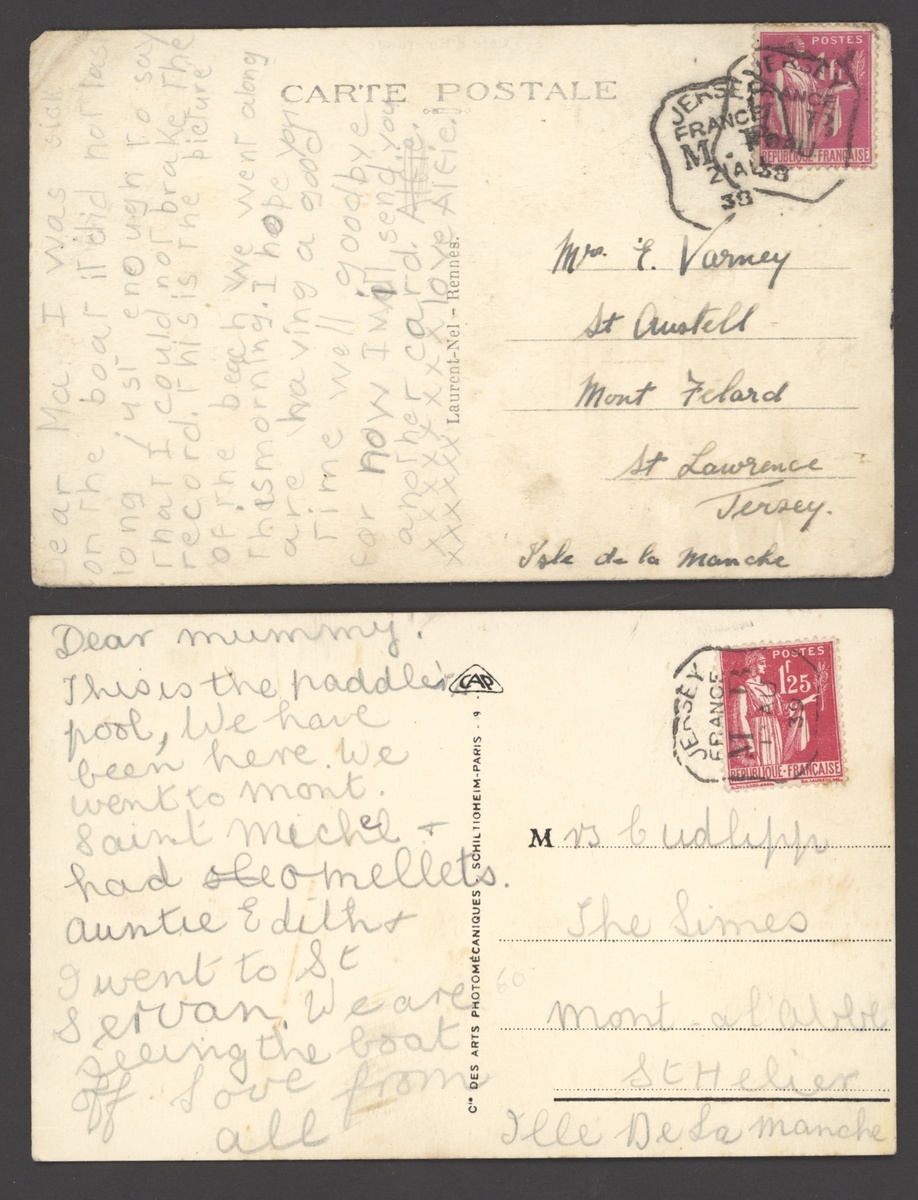 CARTE POSTALE
Dear Ma. I was sick
on the boat it did not last
long just enough to say
that I could not brake the
record. This is the picture
of the beach we went along
this morning. I hope you
are having a good
time well goodbye
for now I will send you
another card. Alfie.
xxxxxxxxxxx love Alfie.
Laurent-Nel - Rennes.
POSTES
REPUBLIQUE-FRANCAISE
JERSEY
FRANCE
M.
21 AU
38
Mrs. E. Varney
St Austell
Mont Felard
St Lawrence
Jersey.
Isle de la Manche
Dear mummy.
This is the paddlein
pool, We have
been here. We
went to Mont.
Saint Michel +
had omellets.
Auntie Edith +
I went to St
Servan. We are
seeing the boat
off Love from
all
CAP
Cie DES ARTS PHOTOMÉCANIQUES - SCHILTIGHEIM-PARIS - 9
60
POSTES
1F25
REPUBLIQUE-FRANCAISE
JERSEY
FRANCE
M
AU
39
Mrs Cudlipp
The Limes
Mont-a l'Abbe
St Helier
Ille De La Manche